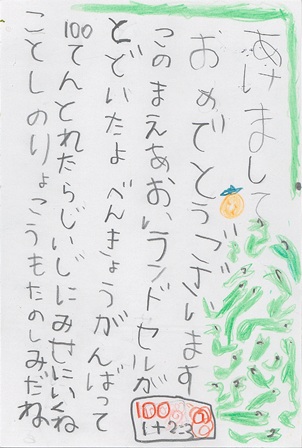 あけまして
おめでとうございます
このまえあおいランドセルが
とどいたよ べんきょうがんばって
100てんとれたらじいじにみせにいくね
ことしのりょこうもたのしみだね
100
1+2=3